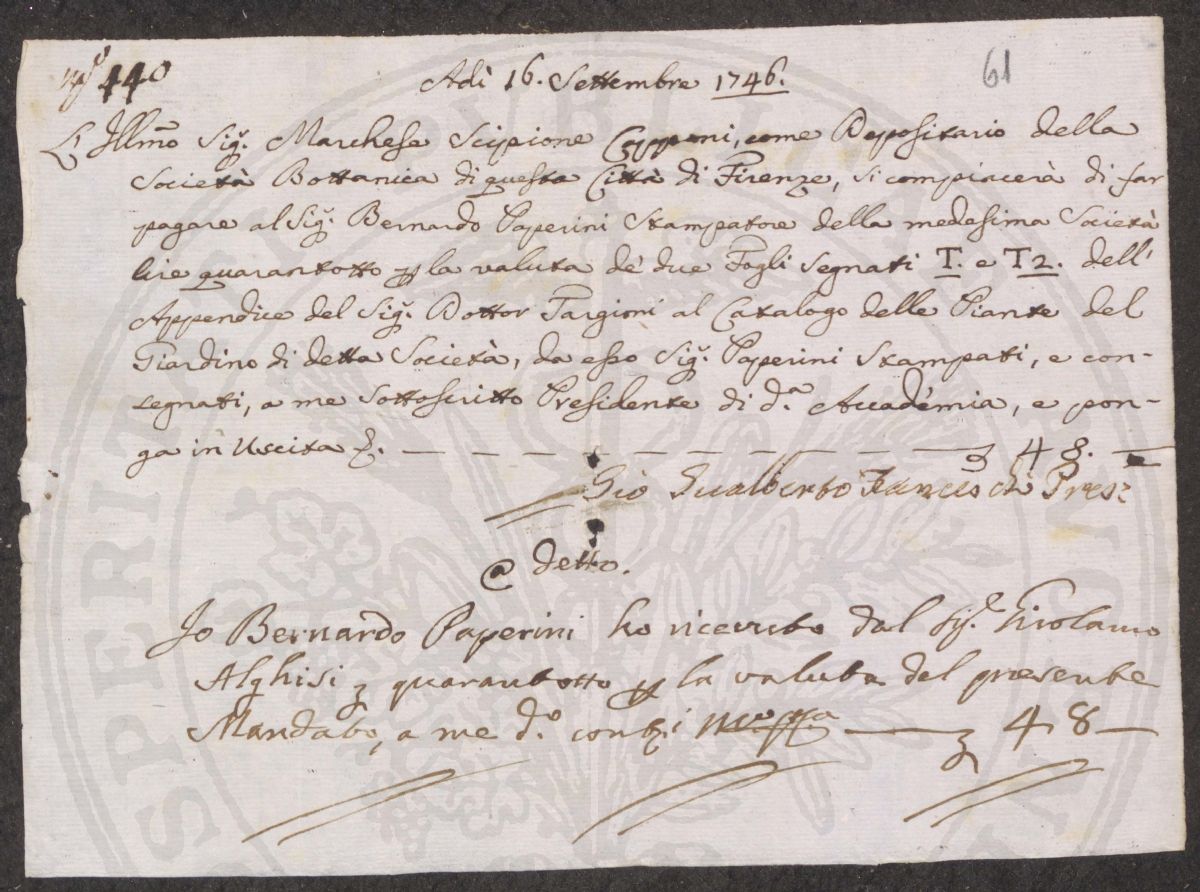 N.º 440
61
Adì 16. Settembre 1746.
L'Illmo Sig.r Marchese Scipione Capponi, come Depositario della
Società Bottanica di questa Città di Firenze, si compiacerà di far
pagare al Sig.r Bernardo Paperini Stampatore della medesima Società
lire quarantotto p la valuta de' due Fogli segnati T. e T2. dell'
Appendice del Sig.r Dottor Targioni al Catalogo delle Piante del
Giardino di detta Società, da esso Sig.r Paperini Stampati, e con-
segnati, a me Sottoscritto Presidente di d.a Accadémia, e pon-
ga in Uscita 48.
Gio Gualberto Franceschi Pres.e
a detto.
Io Bernardo Paperini ho ricevuto dal Sig.r Girolamo
Alghisi quarantotto p la valuta del presente
Mandato, a me d.o conti 48
SPERITATI PUBLICAE